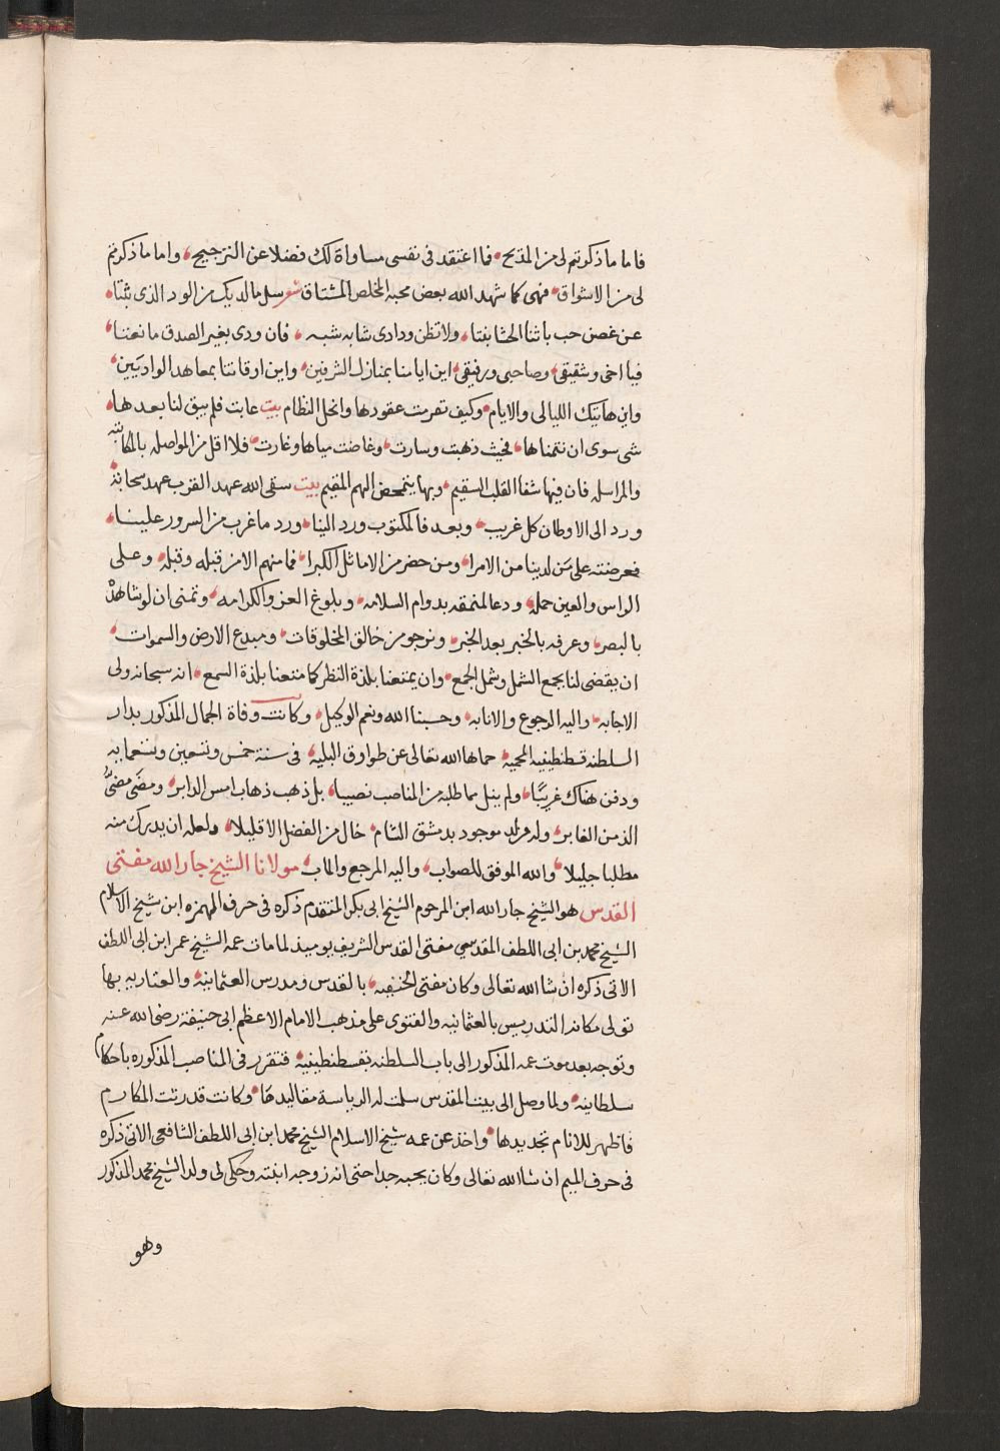 فاما ما ذكرتم لى من المدح فما اعتقد فى نفسى مساواة لك فضلا عن الترجيح واما ما ذكرتم
لى من الاشواق فهى كما شهد الله بعض محبة المخلص المشتاق شعر سل ما لديك من الود الذى ثبتا
عن غصن حب باثنا الحشا نبتا ولا تظن ودادى شابه شبه فان ودى بغير الصدق ما نعتا
فيا اخى وشقيقى وصاحبى ورفيقى اين ايامنا بمنازل الشرفين واين اوقاتنا بمعاهد الواديين
واين هاتيك الليالى والايام وكيف تصرمت عقودها وانحل النظام بيت غابت فلم يبق لنا بعدها
شى سوى ان نتمناها فحيث ذهبت وسارت وغاضت مياها وغارت فلا اقل من المواصله بالمكاتبه
والمراسله فان فيها شفا القلب السقيم وبها يتمحض الهم المقيم بيت سقى الله عهد القرب عهد سحابة
ورد الى الاوطان كل غريب وبعد فالمكتوب ورد الينا ورد ما غرب من السرور علينا
فعرضته على من لدينا من الامرا ومن حضر من الاماثل الكبرا فما منهم الا من قبله وقبله وعلى
الراس والعين حمله ودعا لمنمقه بدوام السلامه وبلوغ العز والكرامه وتمنى ان لو شاهده
بالبصر وعرفه بالخبر بعد الخبر ونرجو من خالق المخلوقات ومبدع الارض والسموات
ان يقضى لنا بجمع الشمل وشمل الجمع وان يمتعنا بلذة النظر كما متعنا بلذة السمع انه سبحانه ولى
الاجابه واليه الرجوع والانابه وحسبنا الله ونعم الوكيل وكانت وفاة الجمال المذكور بدار
السلطنه قسطنطينيه المحميه حماها الله تعالى عن طوارق البليه فى سنة خمس وتسعين وتسعمايه
ودفن هناك غريبا ولم ينل مما طلبه من المناصب نصيبا بل ذهب ذهاب امس الدابر ومضى مضى
الزمن الغابر وله ولد موجود بدمشق الشام خال من الفضل الا قليلا ولعله ان يدرك منه
مطلبا جليلا والله الموفق للصواب واليه المرجع والماب مولانا الشيخ جار الله مفتى
القدس هو الشيخ جار الله ابن المرحوم الشيخ ابى بكر المتقدم ذكره فى حرف الهمزه ابن شيخ الاسلام
الشيخ محمد بن ابى اللطف المقدسى مفتى القدس الشريف يوميذ لما مات عمه الشيخ عمر ابن ابى اللطف
الاتى ذكره ان شا الله تعالى وكان مفتى الحنفيه بالقدس ومدرس العثمانيه والمشار اليه بها
تولى مكانه التدريس بالعثمانيه والفتوى على مذهب الامام الاعظم ابى حنيفة رضى الله عنه
وتوجه بعد موت عمه المذكور الى باب السلطنه بقسطنطينيه فتقرر فى المناصب المذكوره باحكام
سلطانيه ولما وصل الى بيت المقدس سلمت له الرياسة مقاليدها وكانت قد رثت المكارم
فاظهر للانام تجديدها واخذ عن عمه شيخ الاسلام الشيخ محمد ابن ابى اللطف الشافعى الاتى ذكره
فى حرف الميم ان شا الله تعالى وكان يحبه جدا حتى انه زوجه ابنته وحكى لى ولد الشيخ محمد المذكور
وهو